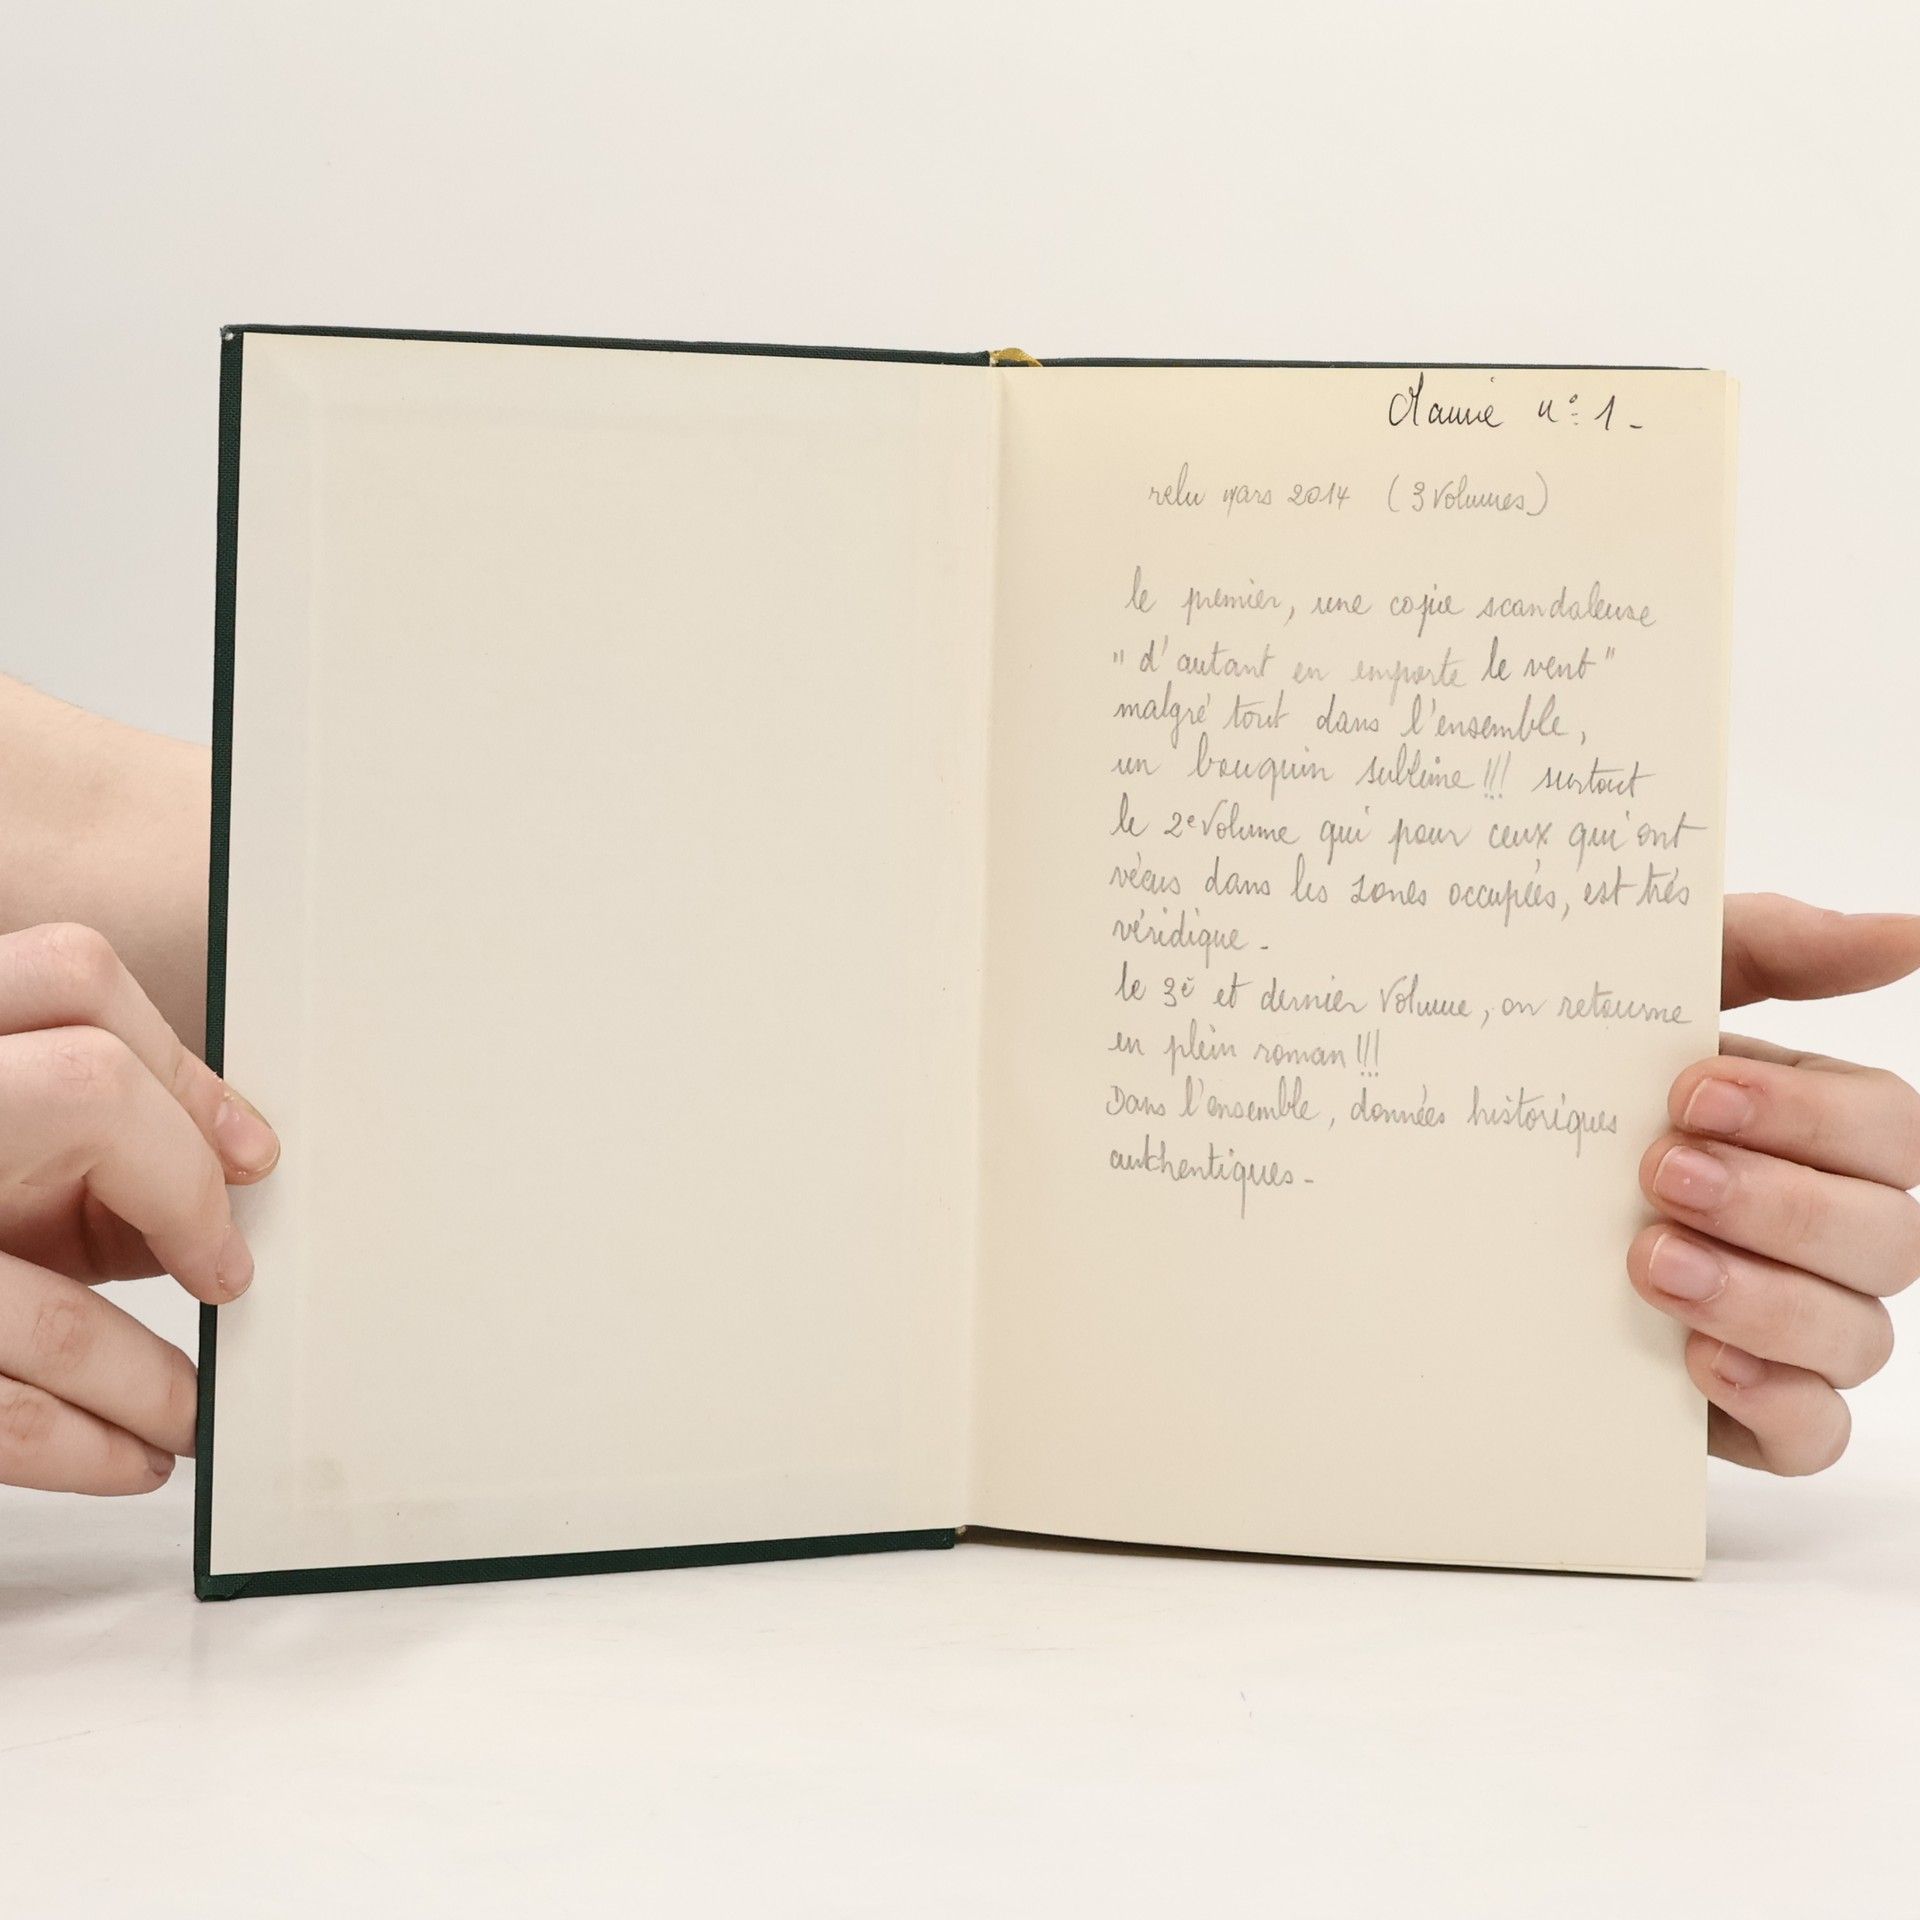 Mamie n° 1 -
relu mars 2014 (3 Volumes)
le premier, une copie scandaleuse
"d'autant en emporte le vent"
malgré tout dans l'ensemble,
un bouquin sublime !!! surtout
le 2e Volume qui pour ceux qui ont
vécus dans les zones occupées, est très
véridique -
le 3è et dernier Volume, on retourne
en plein roman !!!
Dans l'ensemble, données historiques
authentiques -